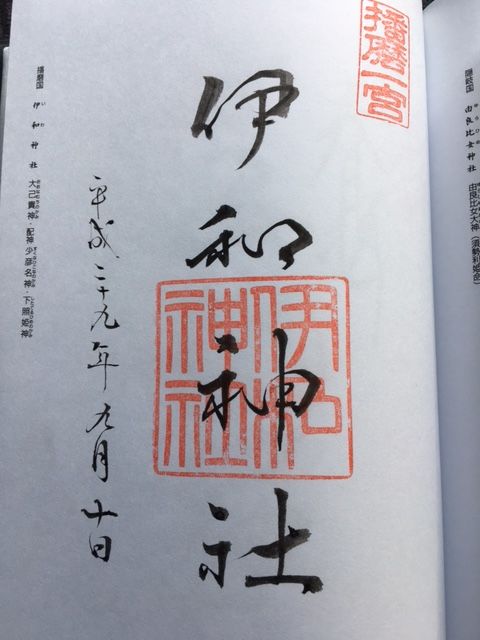 隠岐国 由良比女神社 由良比女大神(須勢利姫命)
播磨一宮
伊和神社
伊和神社
平成二十九年九月十日
播磨国 伊和神社 大己貴神・配神 少彦名神・下照姫神